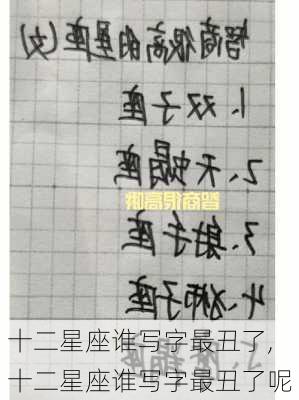 智商很高的星座(女)
1、双子座
2、天蝎座
3、射手座
4、狮子座
十二星座谁写字最丑了,
十二星座谁写字最丑了呢